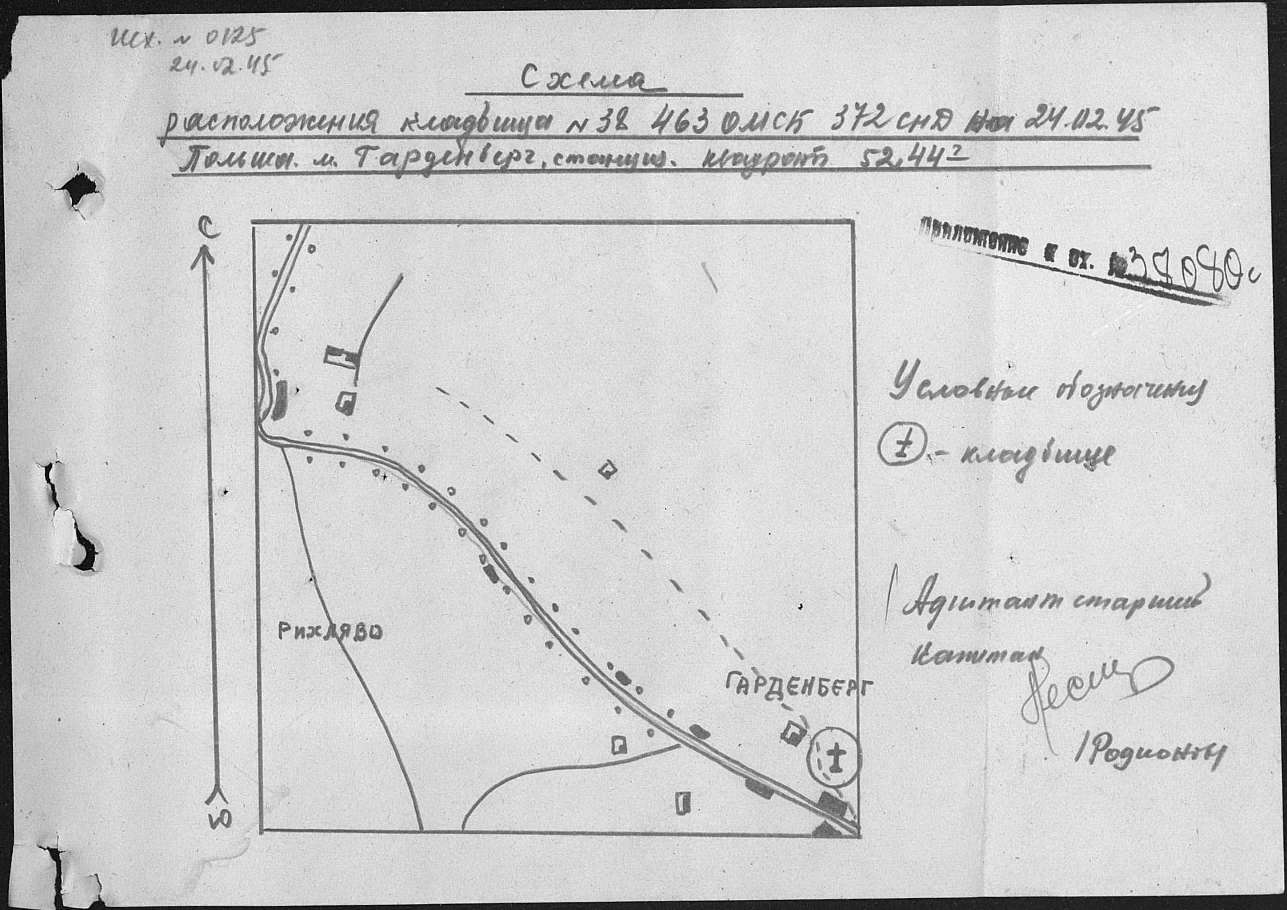 Исх. № 0125
24.02.45
Схема
расположения кладбища №38 463 ОМСК 372 снд на 24.02.45
Польша. м. Гарденберг, станция. квадрат 52,44²
С
Приложение к вх. № 37080с
Условные обозначения
‡ - кладбище
Рихляво
Адютант старший
капитан
ГАРДЕНБЕРГ
/Родионов/
Ю